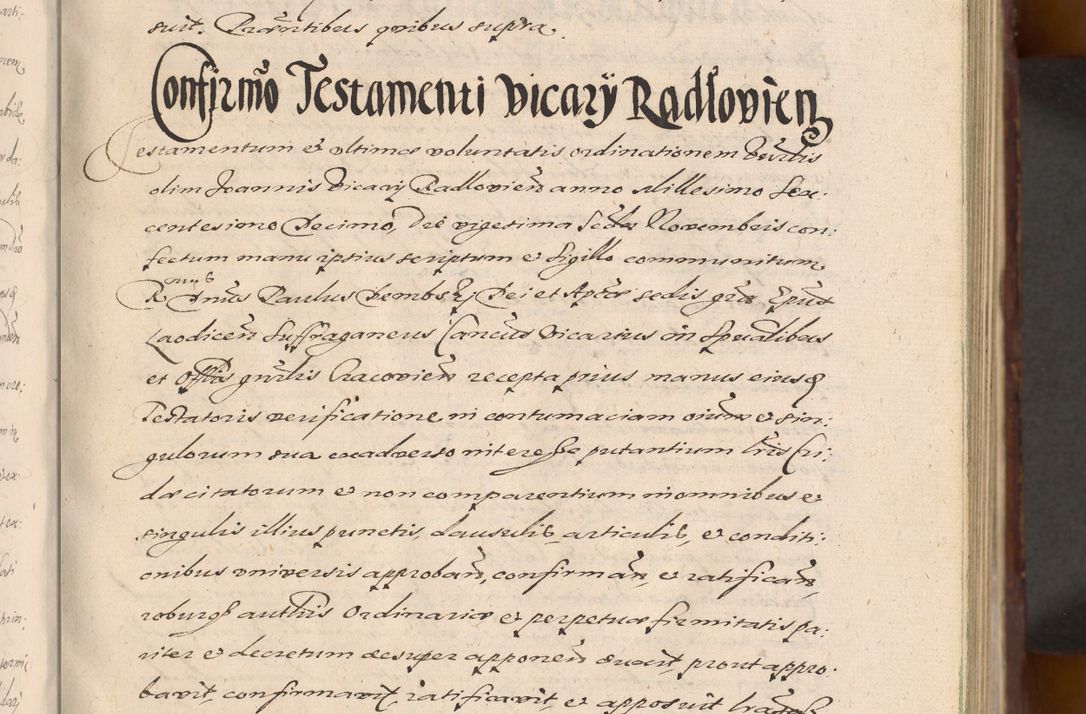 suit. Præsentibus quibus supra.
Confirmõ Testamenti Vicarÿ Radłovien
Testamentum et ultimæ voluntatis ordinationem
olim Joannis Vicarij Radlovien anno Millesimo Sex:
centesimo Decimo, Die vigesima Novembris con:
fectum manu ipsius scriptum et Sigillo communitum
R Dnus Paulus Dembsky Dei et Aptcæ sedis grã Epus
Laodicen Suffraganeus Vicarius in Spualibus
et Offlis gnrlis Cracovien recepta prius manus eiusq
Testatoris verificatione in contumaciam oium et sin:
gulorum sua ex adverso interesse putantium Lris Cri:
dæ citatorum et non comparentium in omnibus et
singulis illius punctis, clausulis, articulis, et conditi:
onibus universis approban, confirman et ratifican
roburq authtis Ordinariæ et perpetuæ firmitatis pa:
riter et decretum desuper apponen duxit, prout appro:
bavit, confirmavit, ratificavit, et apposuit